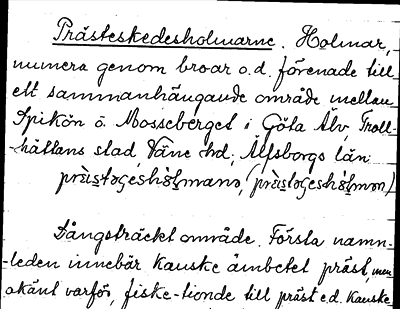 Prästeskedesholmarne. Holmar,
numera genom broar o.d. förenade till
ett sammanhängande område mellan
Spikön o. Mosseberget i Göta Älv, Troll-
-hättans stad, Väne hd, Älfsborgs län.
Långsträckt område. Första namn-
-leden innebär kanske ämbetet präst, men
okänt varför, fiske-tionde till präst e.d. kanske